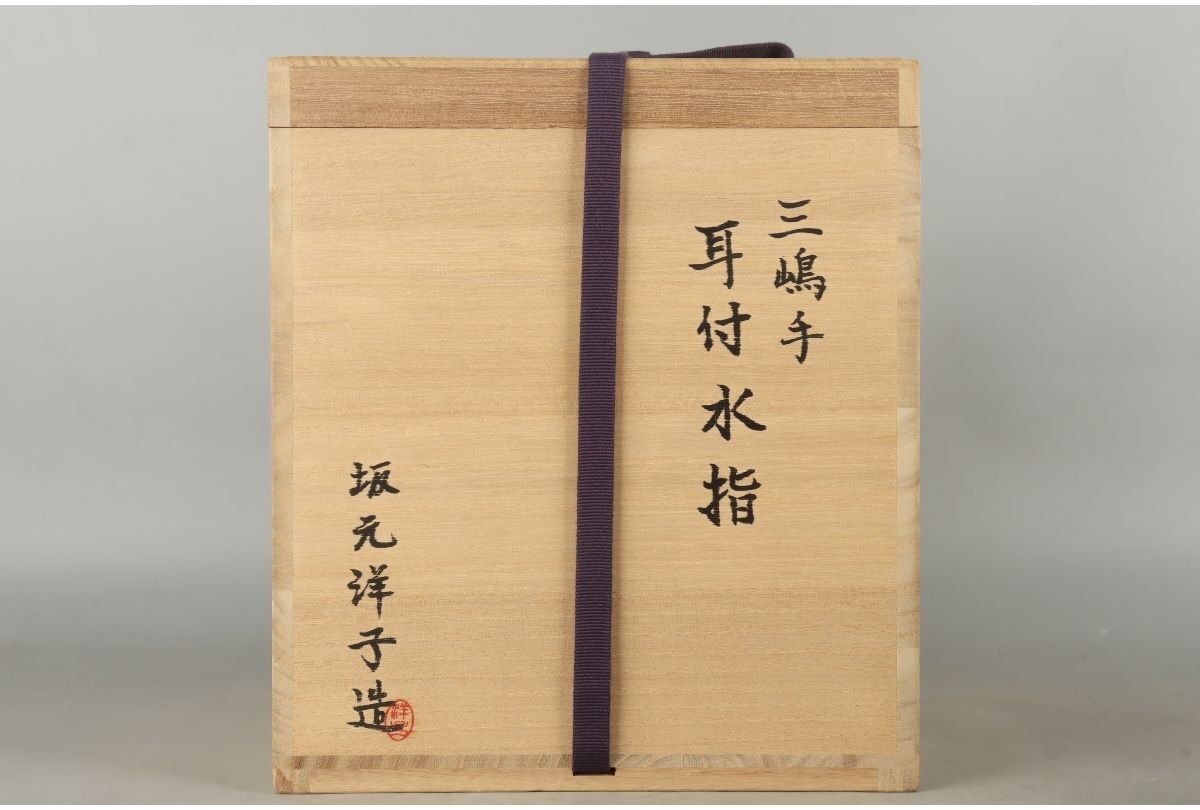 三嶋手
耳付水指
坂元洋子造